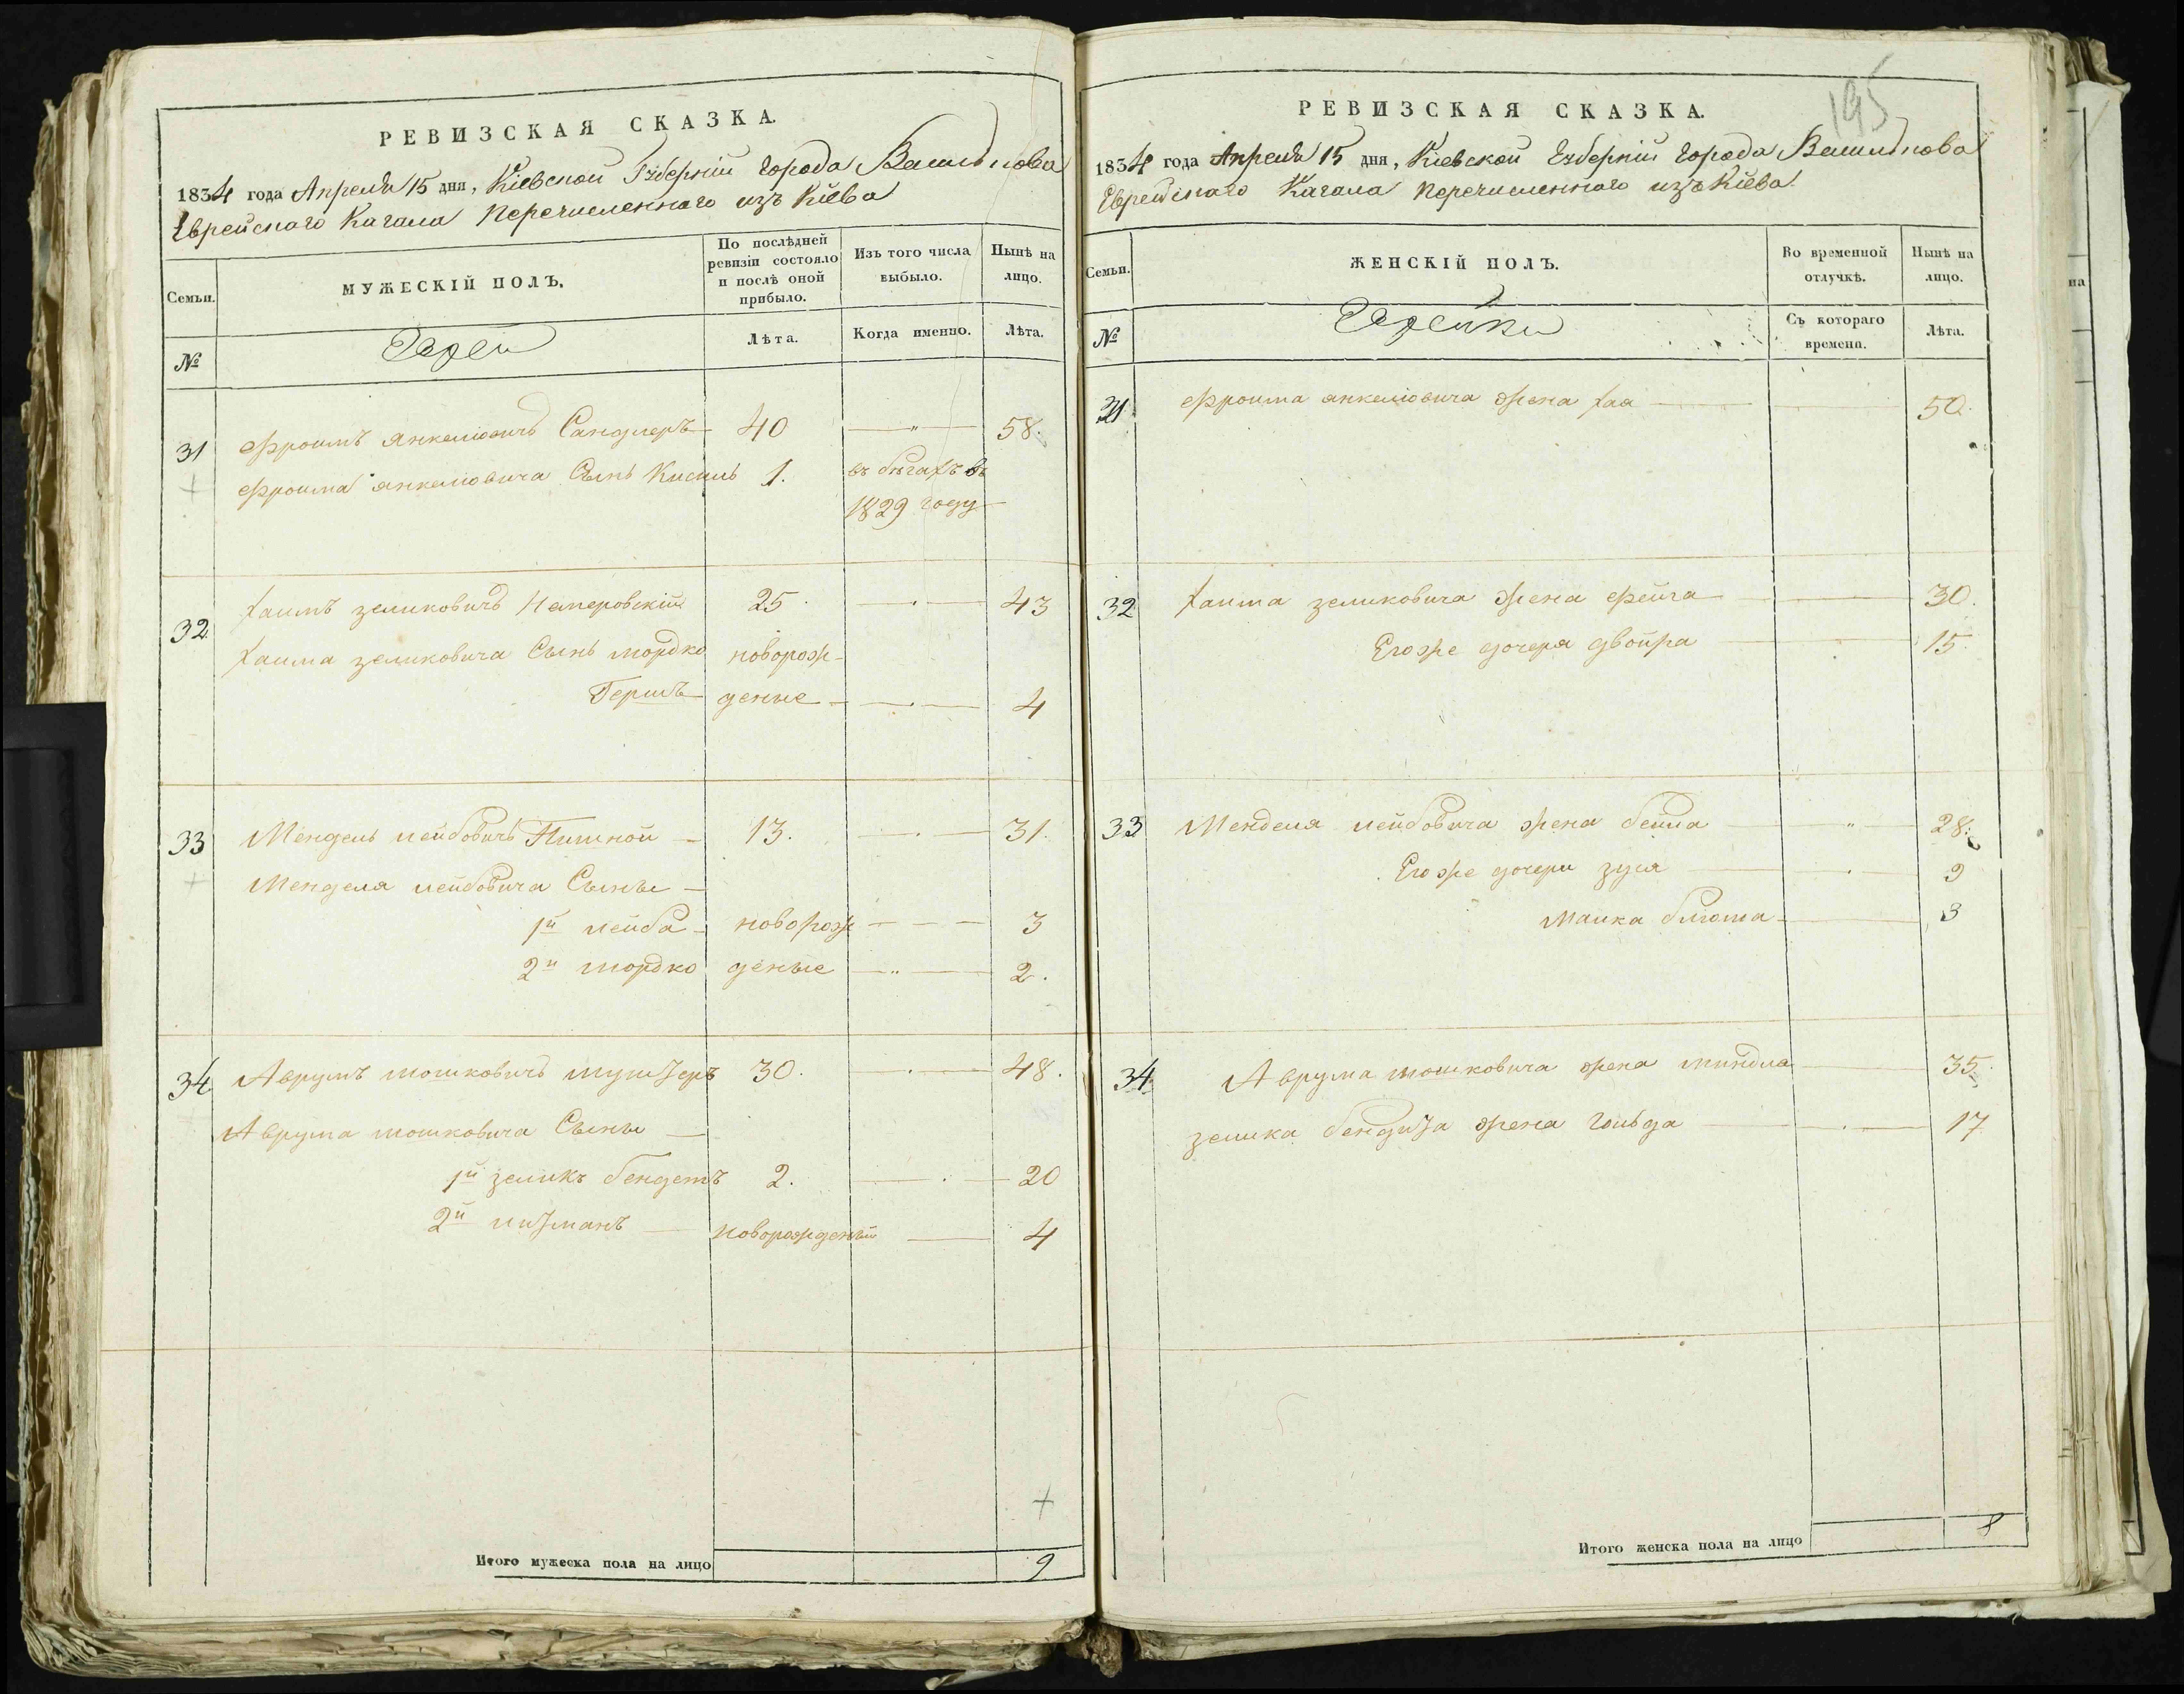 РЕВИЗСКАЯ СКАЗКА.
1834 года Апреля 15 дня, Кіевской Губерніи города Василькова
Еврейскаго Кагала перечисленнаго изъ Кіева
Семьи.
МУЖЕСКІЙ ПОЛЪ.
По послѣдней ревизіи состояло и послѣ оной прибыло.
Изъ того числа выбыло.
Нынѣ на лицо.
№
Евреи
Лѣта.
Когда именно.
Лѣта.
31 Фроимъ Янкелювичъ Сандлеръ 40 — " — 58.
Фроима Янкелювича Сынъ Кисиль 1. въ бѣгахъ въ
1829 году
32 Хаимъ Зеликовичъ Немеровскій 25. — 43
Хаима Зеликовича Сынъ Мордко новорож-
Гершъ деные — 4
33 Мендель Лейбовичъ 13. — 31.
Менделя Лейбовича Сыны —
1й Лейба новорож — 3
2й Мордко деные — " — 2.
34 Аврумъ Мошковичъ 30. — 48.
Аврума Мошковича Сыны —
1й Зеликъ Бендетъ 2. — 20
2й Литманъ — новорожденый — 4
Итого мужеска пола на лицо 9
195
РЕВИЗСКАЯ СКАЗКА.
1834 года Апреля 15 дня, Кіевской Губерніи города Василькова
Еврейскаго Кагала перечисленнаго изъ Кіева.
Семьи.
ЖЕНСКІЙ ПОЛЪ.
Во временной отлучкѣ.
Нынѣ на лицо.
№
Еврейки
Съ котораго времени.
Лѣта.
31 Фроима Янкелювича жена Хая — 50.
32 Хаима Зеликовича жена Фейга — 30.
Егоже дочеря Двойра — 15.
33 Менделя Лейбовича жена Бейла — " — 28.
Егоже дочери Зуся — 9
Малка Блюма — 3
34 Аврума Мошковича жена Миндла — 35.
Зелика Бендита жена Гольда — 17
Итого женска пола на лицо 8